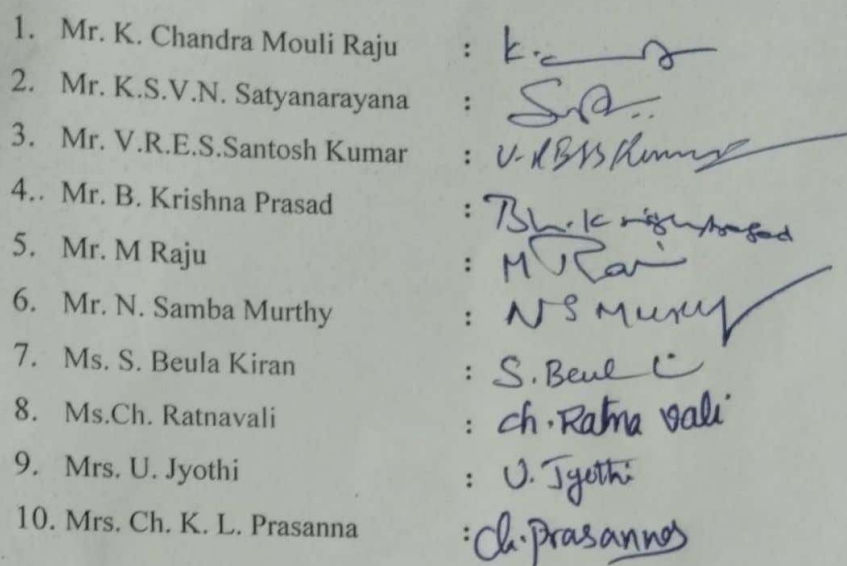 1. Mr. K. Chandra Mouli Raju : K.
2. Mr. K.S.V.N. Satyanarayana :
3. Mr. V.R.E.S.Santosh Kumar : Kumar
4.. Mr. B. Krishna Prasad : Bh. Krishna prasad
5. Mr. M Raju : M Raju
6. Mr. N. Samba Murthy : N S Murthy
7. Ms. S. Beula Kiran : S. Beul
8. Ms.Ch. Ratnavali : ch. Ratna vali
9. Mrs. U. Jyothi : U. Jyothi
10. Mrs. Ch. K. L. Prasanna : Ch. prasanna